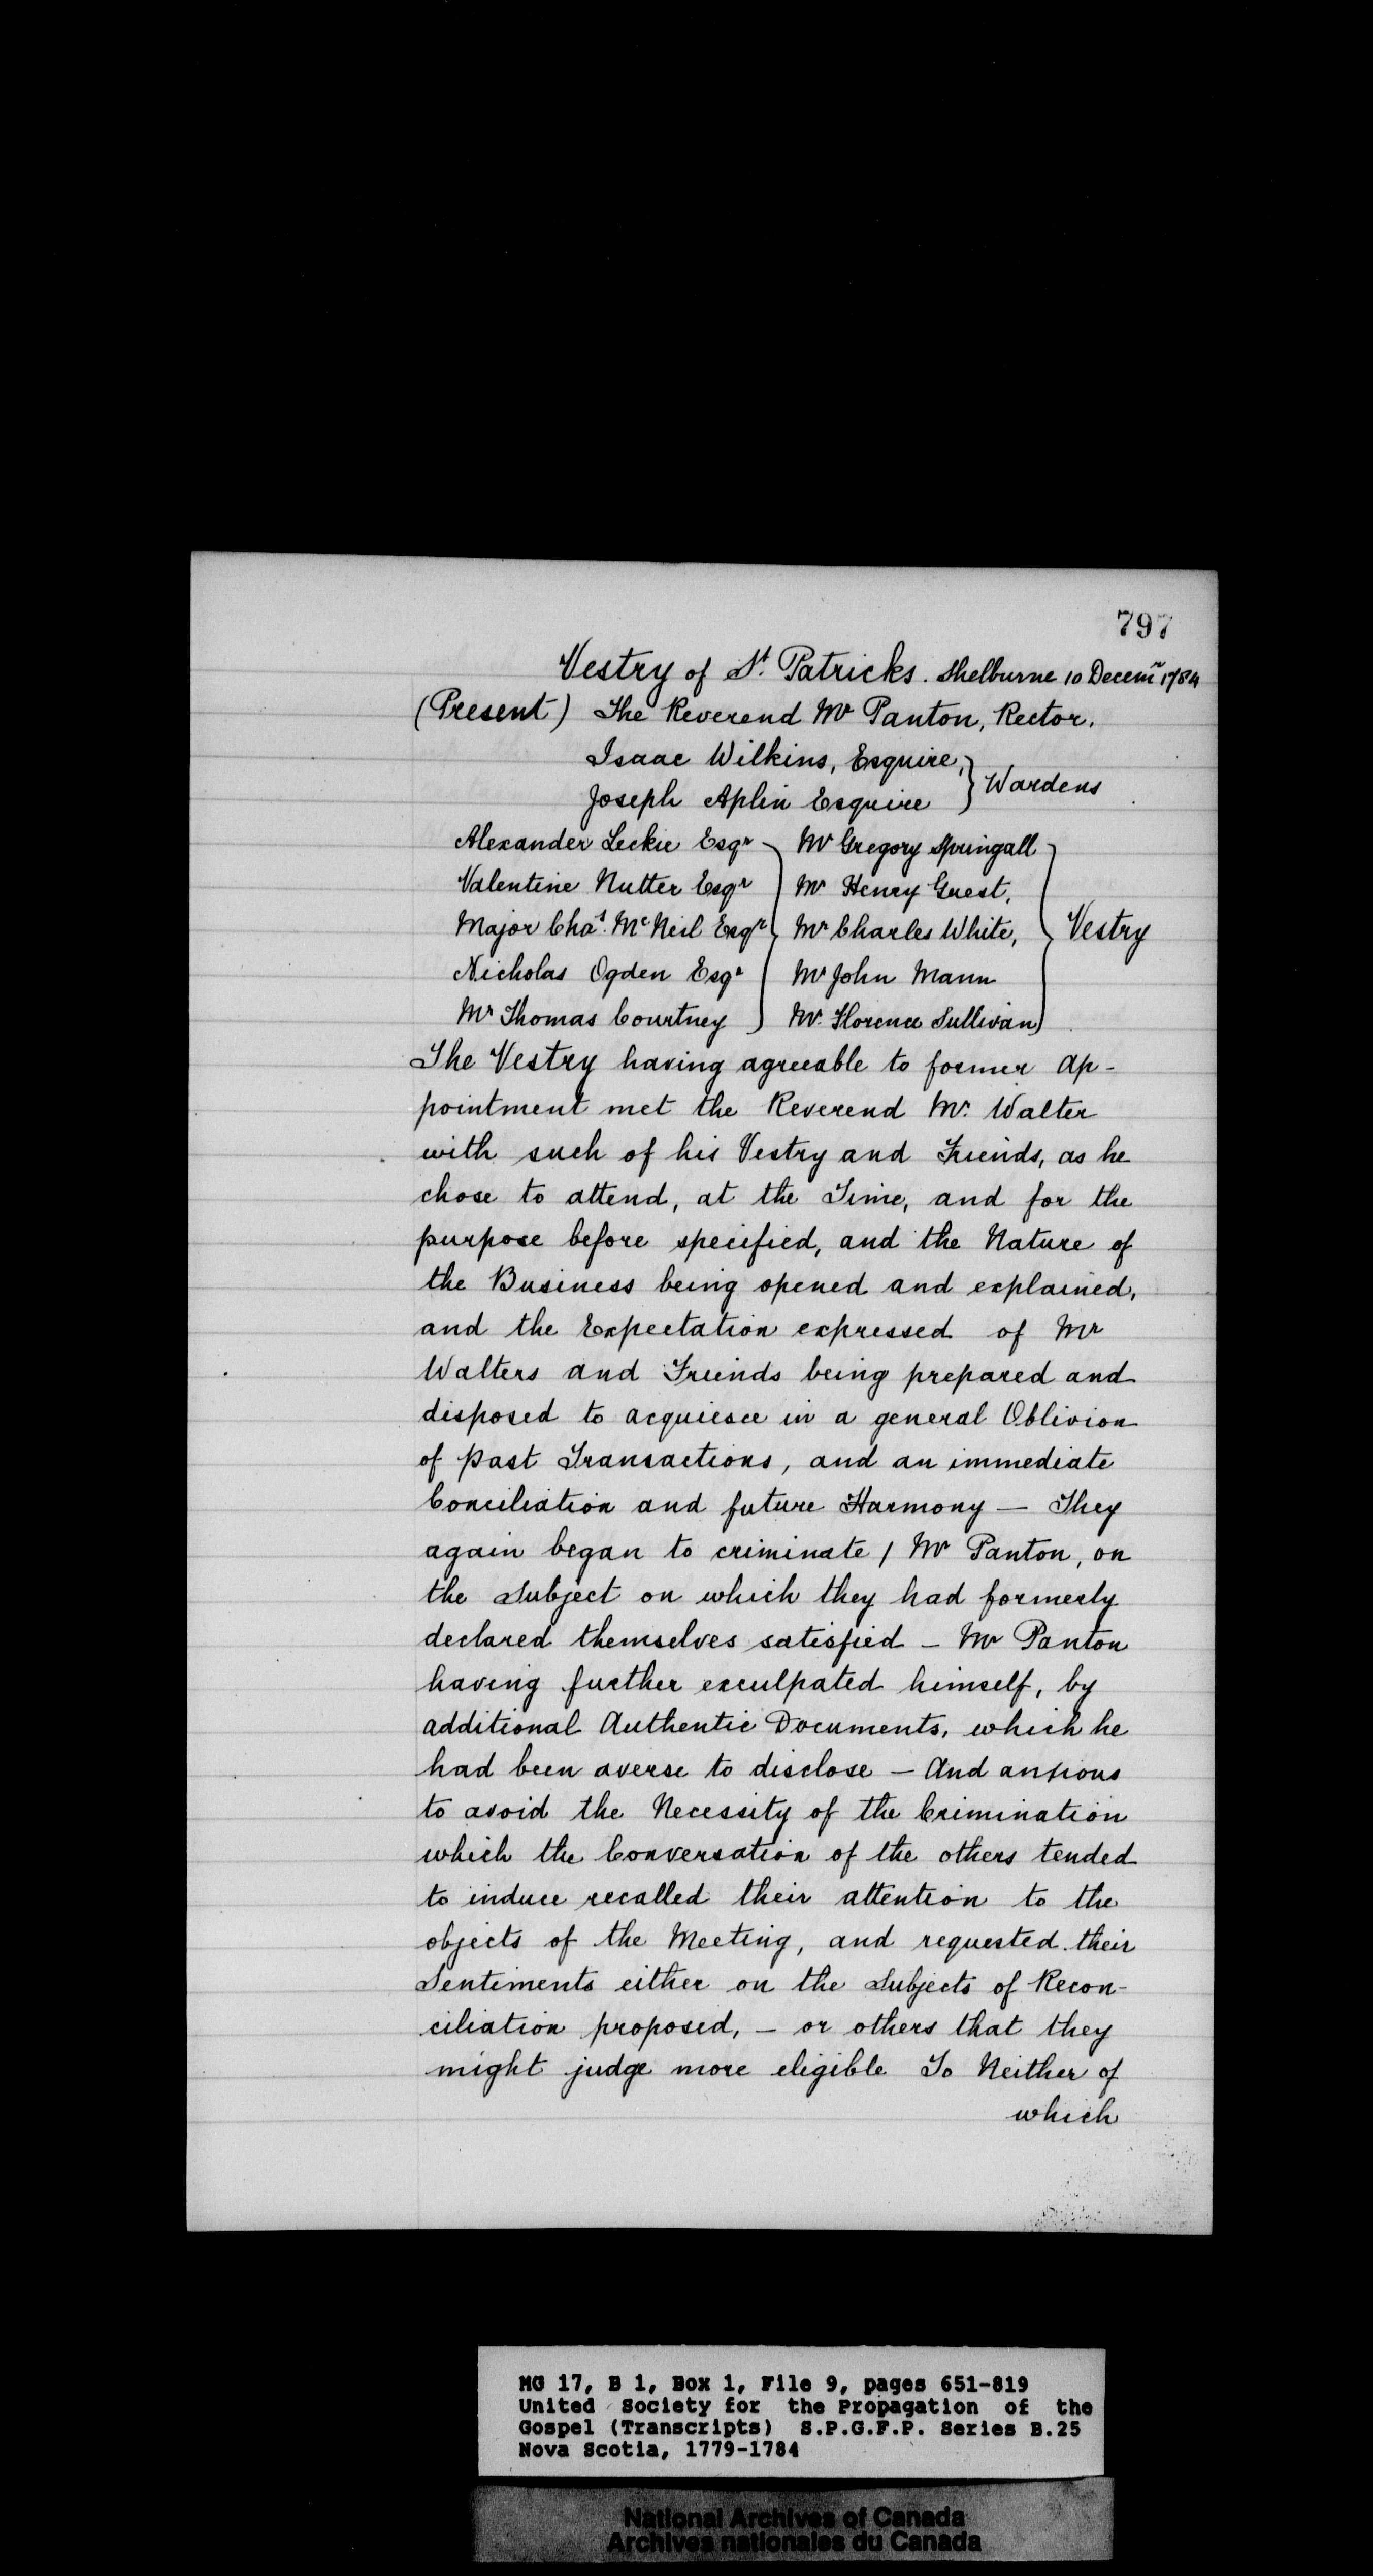 797
Vestry of St. Patricks. Shelburne 10 Decemr 1784
(Present) The Reverend Mr Panton, Rector.
Isaac Wilkins, Esquire, } Wardens
Joseph Aplin Esquire
Alexander Leckie Esqr } Mr Gregory Springall } Vestry
Valentine Nutter Esqr Mr Henry Guest,
Major Chas. McNeil Esqr Mr Charles White,
Nicholas Ogden Esqr Mr John Mann
Mr Thomas Courtney Mr. Florence Sullivan
The Vestry having agreeable to former ap-
pointment met the Reverend Mr. Walter
with such of his Vestry and Friends, as he
chose to attend, at the Time, and for the
purpose before specified, and the Nature of
the Business being opened and explained,
and the Expectation expressed of Mr
Walters and Friends being prepared and
disposed to acquiesce in a general Oblivion
of past Transactions, and an immediate
Conciliation and future Harmony — They
again began to criminate / Mr Panton, on
the Subject on which they had formerly
declared themselves satisfied — Mr Panton
having further exculpated himself, by
additional Authentic Documents, which he
had been averse to disclose — And anxious
to avoid the Necessity of the Crimination
which the Conversation of the others tended
to induce recalled their attention to the
objects of the Meeting, and requested their
Sentiments either on the Subjects of Recon-
ciliation proposed, — or others that they
might judge more eligible To Neither of
which
MG 17, B 1, Box 1, File 9, pages 651-819
United Society for the Propagation of the
Gospel (Transcripts) S.P.G.F.P. Series B.25
Nova Scotia, 1779-1784
National Archives of Canada
Archives nationales du Canada